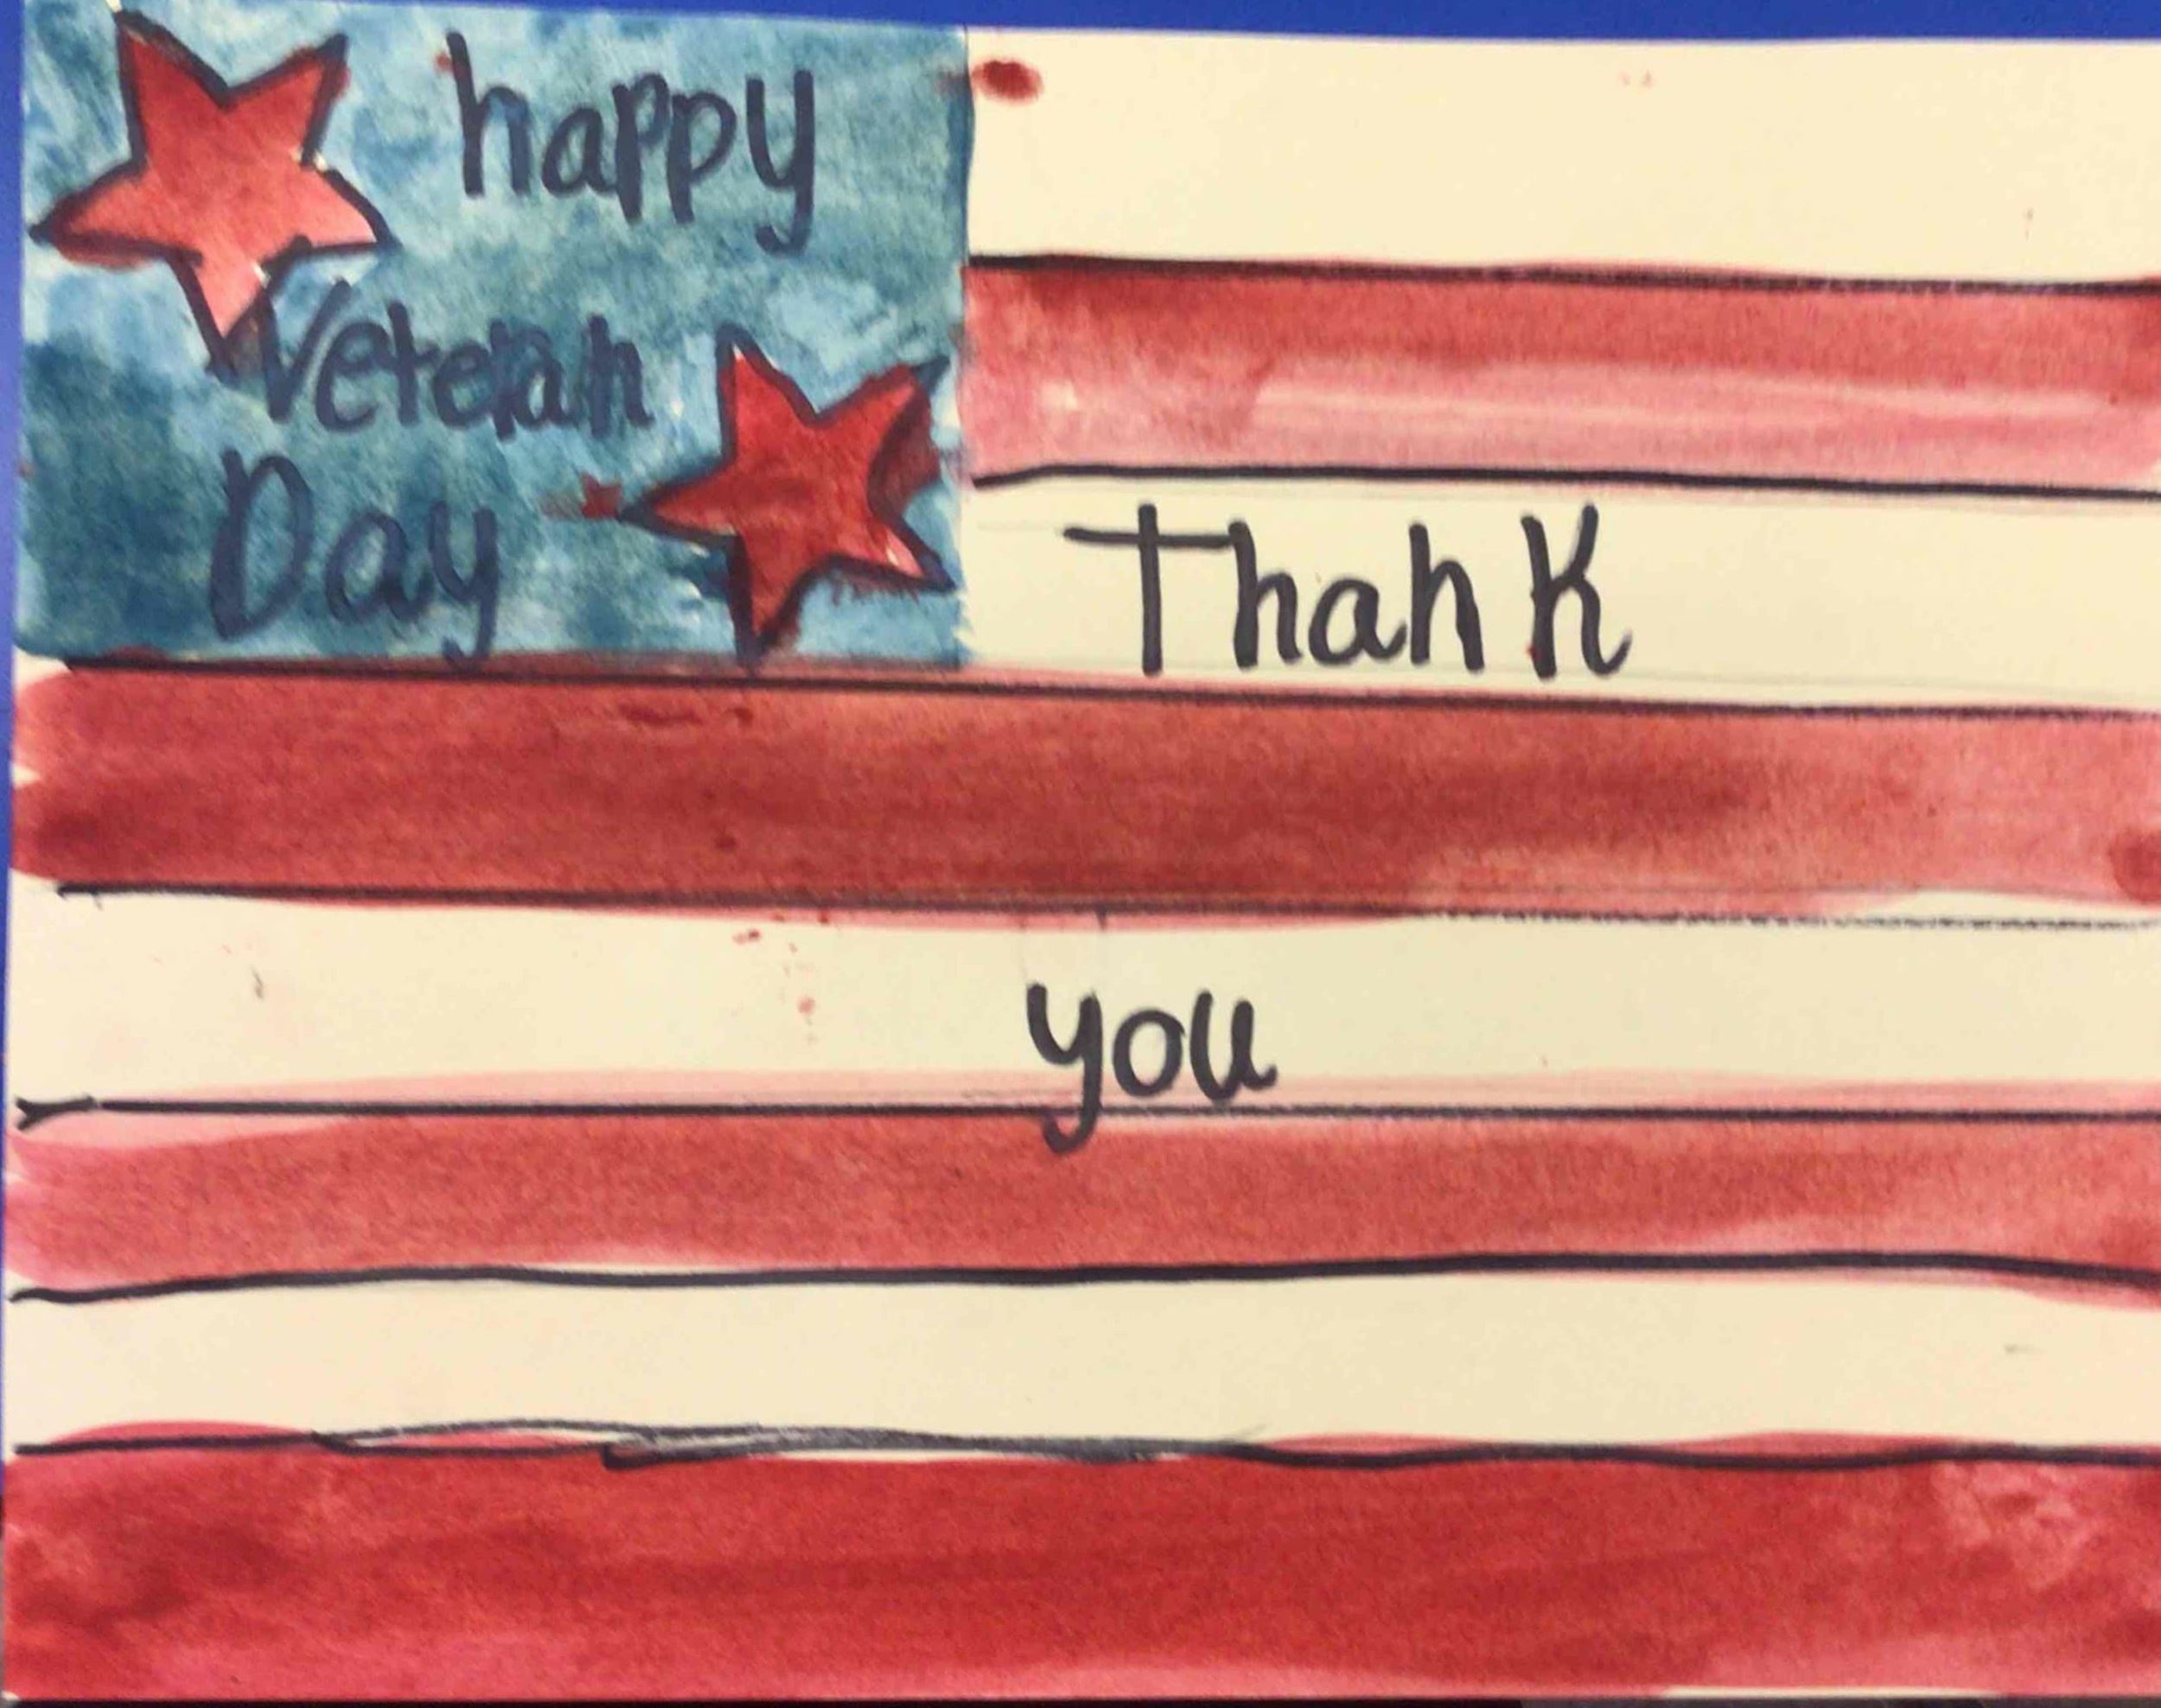 happy
Veteran
Day
Thank
you